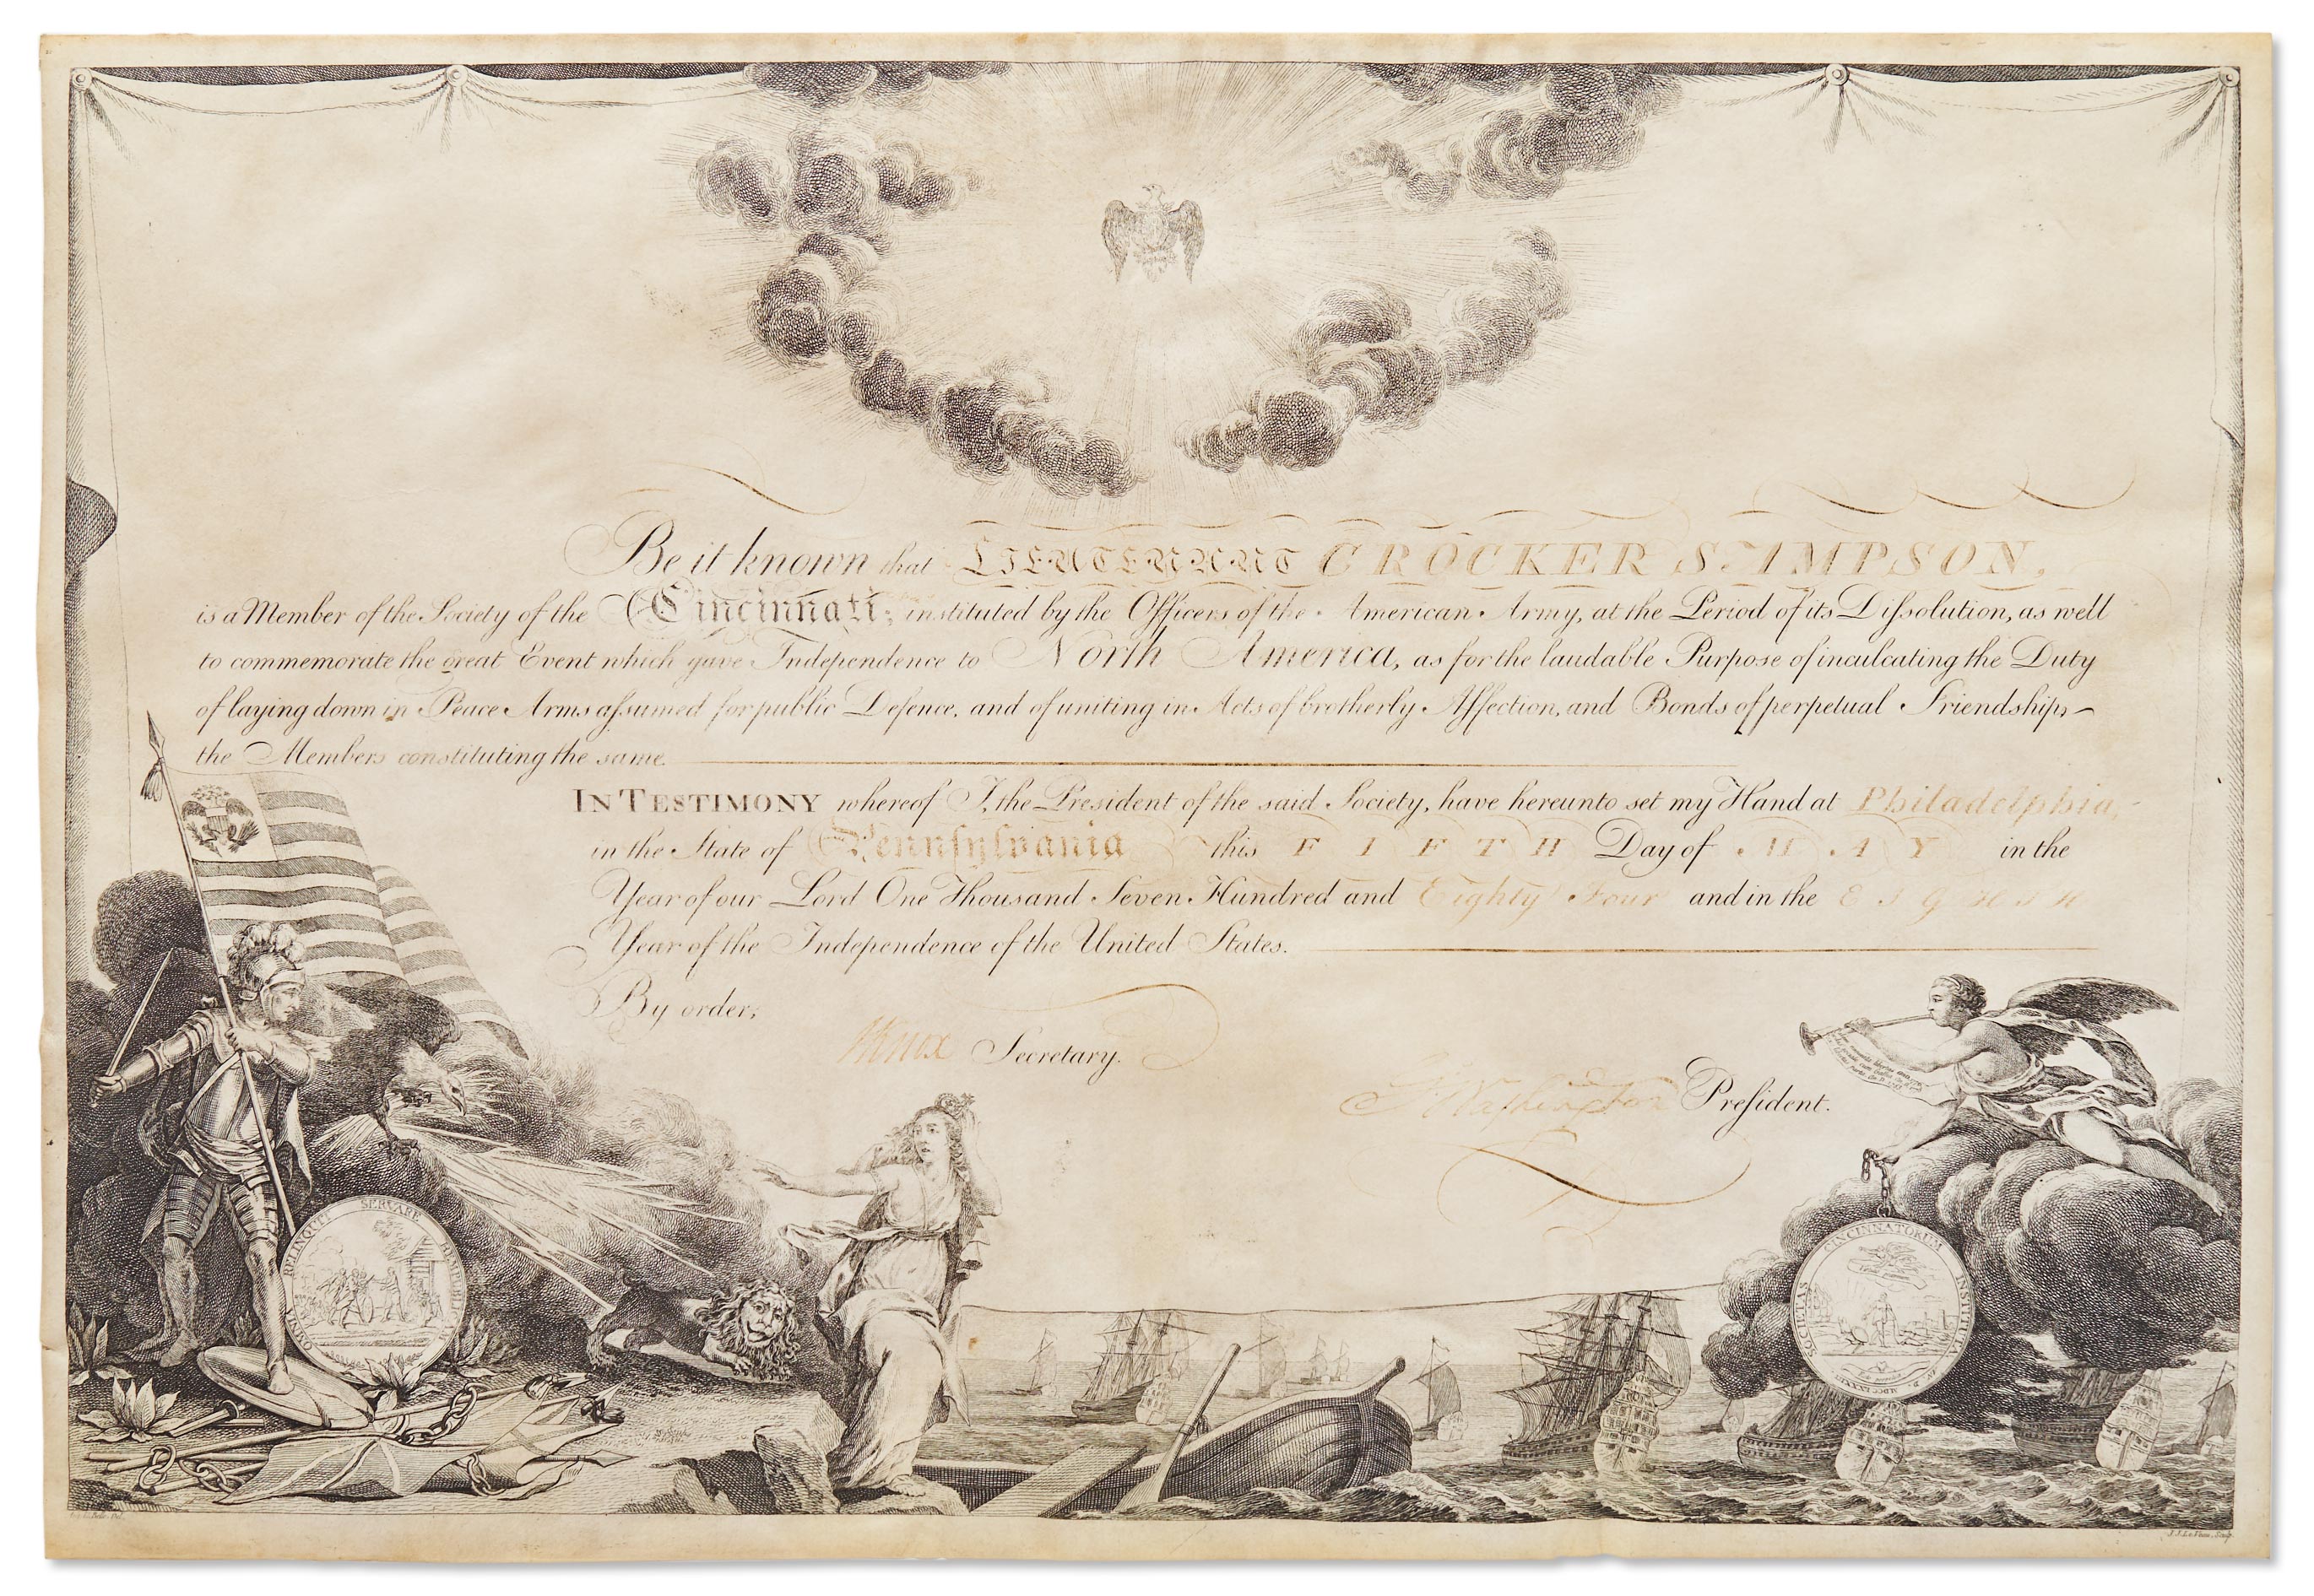 Be it known that LIEUTENANT CROCKER SAMPSON,
is a Member of the Society of the Cincinnati; instituted by the Officers of the American Army, at the Period of its Dissolution, as well
to commemorate the great Event which gave Independence to North America, as for the laudable Purpose of inculcating the Duty
of laying down in Peace Arms assumed for public Defence, and of uniting in Acts of brotherly Affection, and Bonds of perpetual Friendship,
the Members constituting the same.
IN TESTIMONY whereof I, the President of the said Society, have hereunto set my Hand at Philadelphia,
in the State of Pennsylvania this FIFTH Day of MAY in the
Year of our Lord One Thousand Seven Hundred and Eighty Four and in the EIGHTH
Year of the Independence of the United States.
By order,
HKnox Secretary.
G Washington President.
OMNIA RELINQUIT SERVARE REMPUBLICAM
SOCIETAS CINCINNATORUM INSTITUTA
J.J. Le Veau, Sculp.